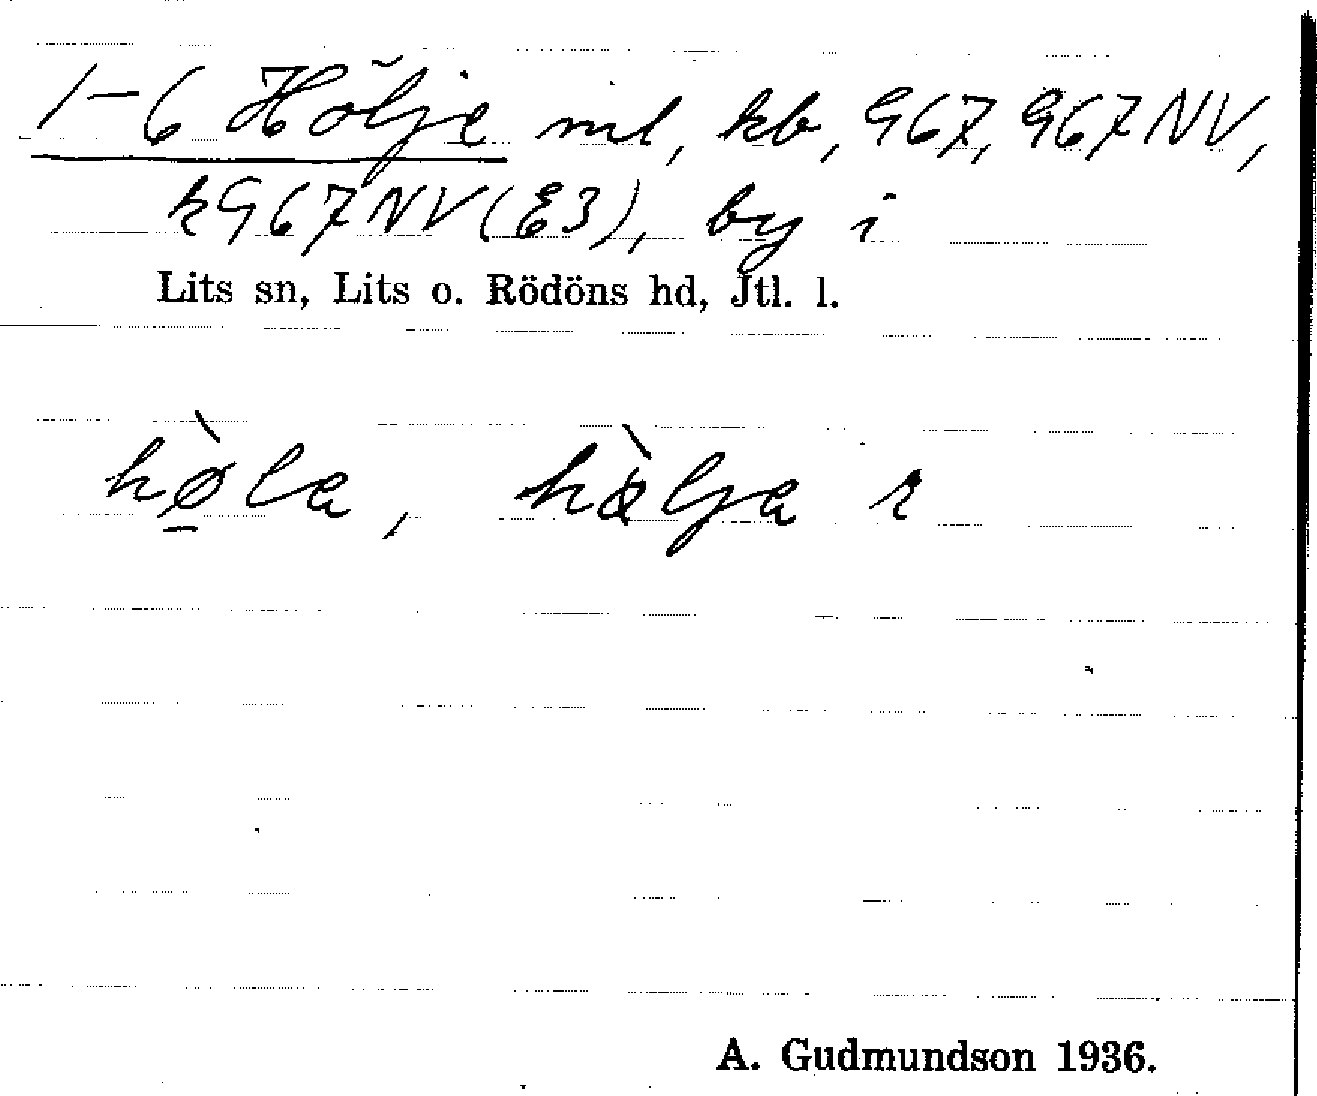 1-6 Hölje ml, kb, G67, G67NV,
kG67NV(E3), by i
Lits sn, Lits o. Rödöns hd, Jtl. l.
hø̀la, hø̀lja
A. Gudmundson 1936.